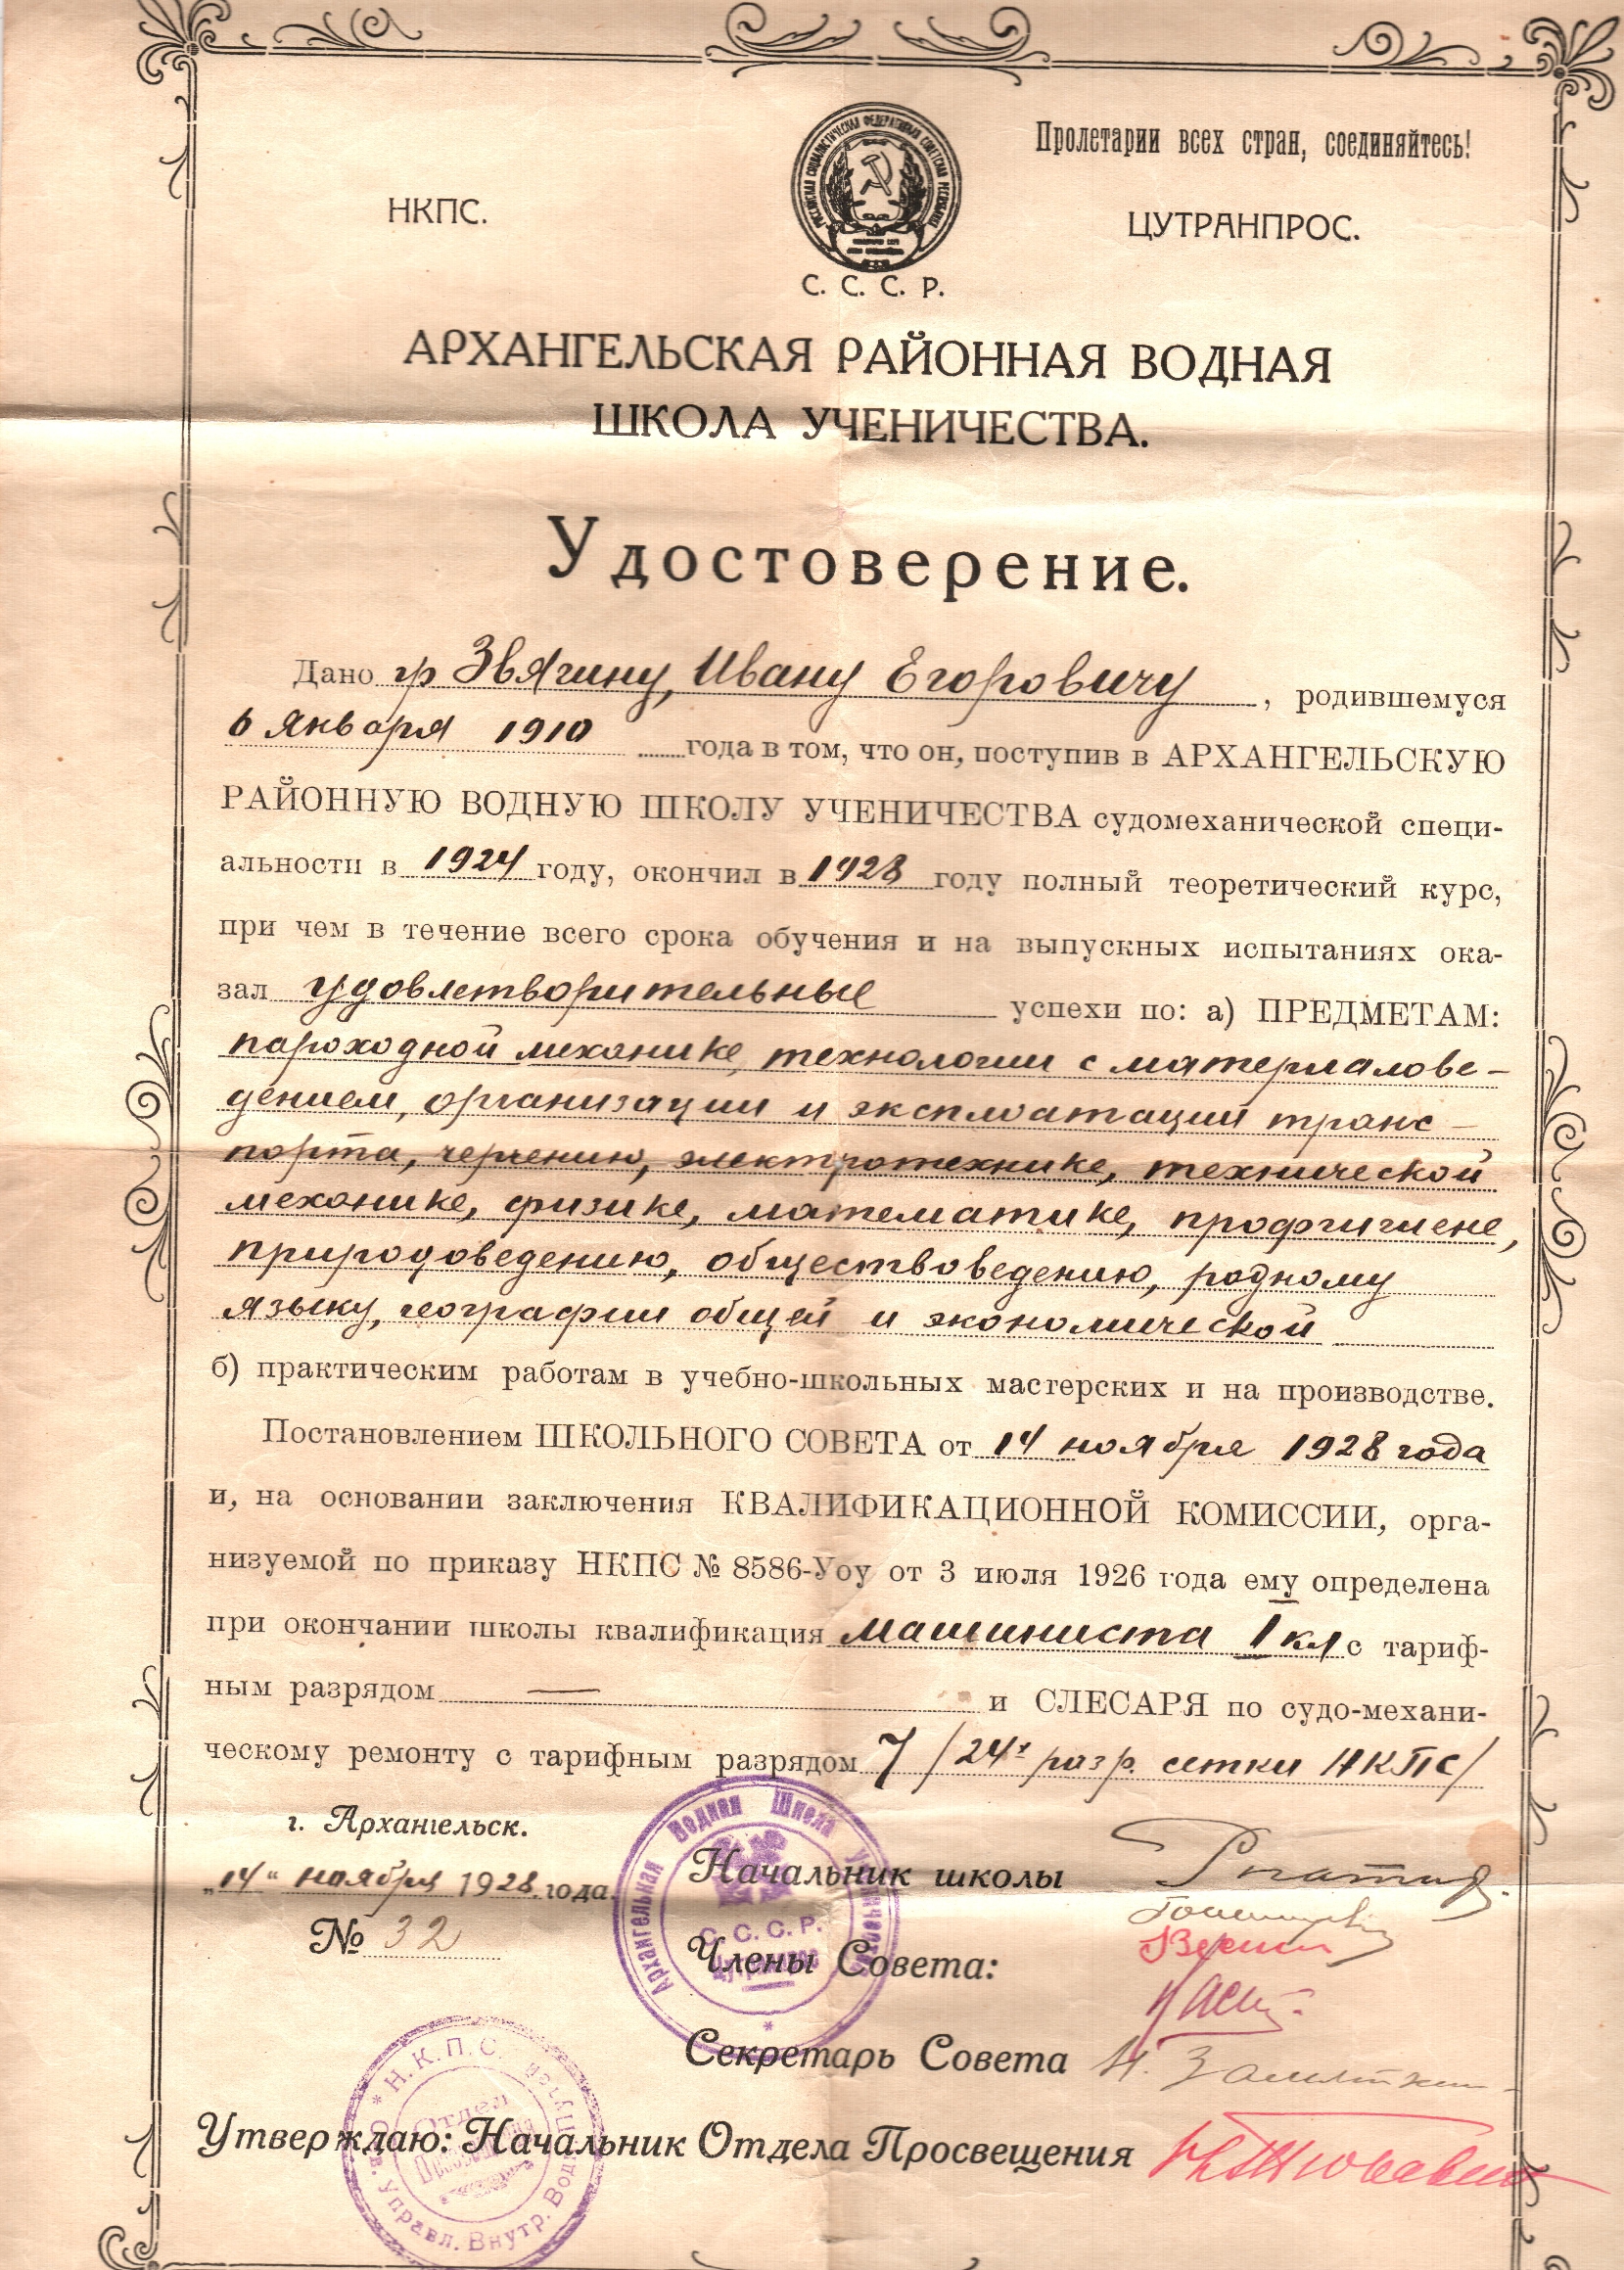 Пролетарии всех стран, соединяйтесь!
НКПС.
ЦУТРАНПРОС.
С. С. С. Р.
АРХАНГЕЛЬСКАЯ РАЙОННАЯ ВОДНАЯ
ШКОЛА УЧЕНИЧЕСТВА.
Удостоверение.
Дано гр Звягину, Ивану Егоровичу, родившемуся
6 января 1910 года в том, что он, поступив в АРХАНГЕЛЬСКУЮ
РАЙОННУЮ ВОДНУЮ ШКОЛУ УЧЕНИЧЕСТВА судомеханической специ-
альности в 1924 году, окончил в 1928 году полный теоретический курс,
при чем в течение всего срока обучения и на выпускных испытаниях ока-
зал удовлетворительные успехи по: а) ПРЕДМЕТАМ:
пароходной механике, технологии с материалове-
дением, организации и эксплоатации транс-
порта, черчению, электротехнике, технической
механике, физике, математике, профгигиене,
природоведению, обществоведению, родному
языку, географии общей и экономической
б) практическим работам в учебно-школьных мастерских и на производстве.
Постановлением ШКОЛЬНОГО СОВЕТА от 14 ноября 1928 года
и, на основании заключения КВАЛИФИКАЦИОННОЙ КОМИССИИ, орга-
низуемой по приказу НКПС № 8586-Уоу от 3 июля 1926 года ему определена
при окончании школы квалификация машиниста I кл с тариф-
ным разрядом — и СЛЕСАРЯ по судо-механи-
ческому ремонту с тарифным разрядом 7 /24х разр. сетки НКПС/
г. Архангельск.
„14" ноября 1928 года.
№ 32
Архангельская Водная Школа ученичества
С. С. С. Р.
Начальник школы
Члены Совета:
Секретарь Совета
Н.К.П.С.
Отдел
Управл. Внутр. Водн.
Утверждаю: Начальник Отдела Просвещения